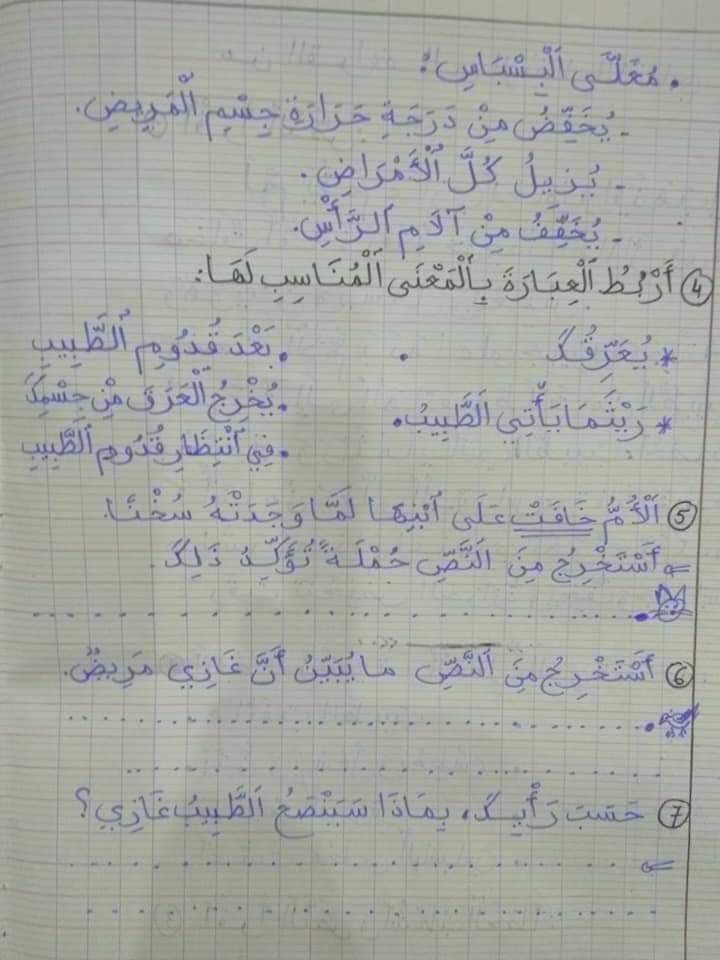 • مُغَلَّى اَلْبِسْبَاسِ :
- يُخَفِّضُ مِنْ دَرَجَةِ حَرَارَةِ جِسْمِ الْمَرِيضِ.
- يُزِيلُ كُلَّ اُلْأَمْرَاضِ.
- يُخَفِّفُ مِنْ آلَامِ اَلرَّأْسِ.
4 أَرْبُطُ اَلْعِبَارَةَ بِاَلْمَعْنَى اَلْمُنَاسِبِ لَهَا:
* يُعَرِّقُكَ • • بَعْدَ قُدُومِ اُلطَّبِيبِ
• يُخْرِجُ الْعَرَقَ مِنْ جِسْمِكَ
* رَيْثَمَا يَأْتِي اَلطَّبِيبُ • • فِي اُنْتِظَارِ قُدُومِ اَلطَّبِيبِ
5 اَلْأُمُّ خَافَتْ عَلَى اُبْنِهَا لَمَّا وَجَدَتْهُ سُخْنًا.
⇐ أَسْتَخْرِجُ مِنَ اَلنَّصِّ جُمْلَةً تُؤَكِّدُ ذَلِكَ.
6 أَسْتَخْرِجُ مِنَ اَلنَّصِّ مَا يُبَيِّنُ أَنَّ غَازِي مَرِيضٌ.
7 حَسَبَ رَأْيِكَ، بِمَاذَا سَيَنْصَحُ اَلطَّبِيبُ غَازِي؟